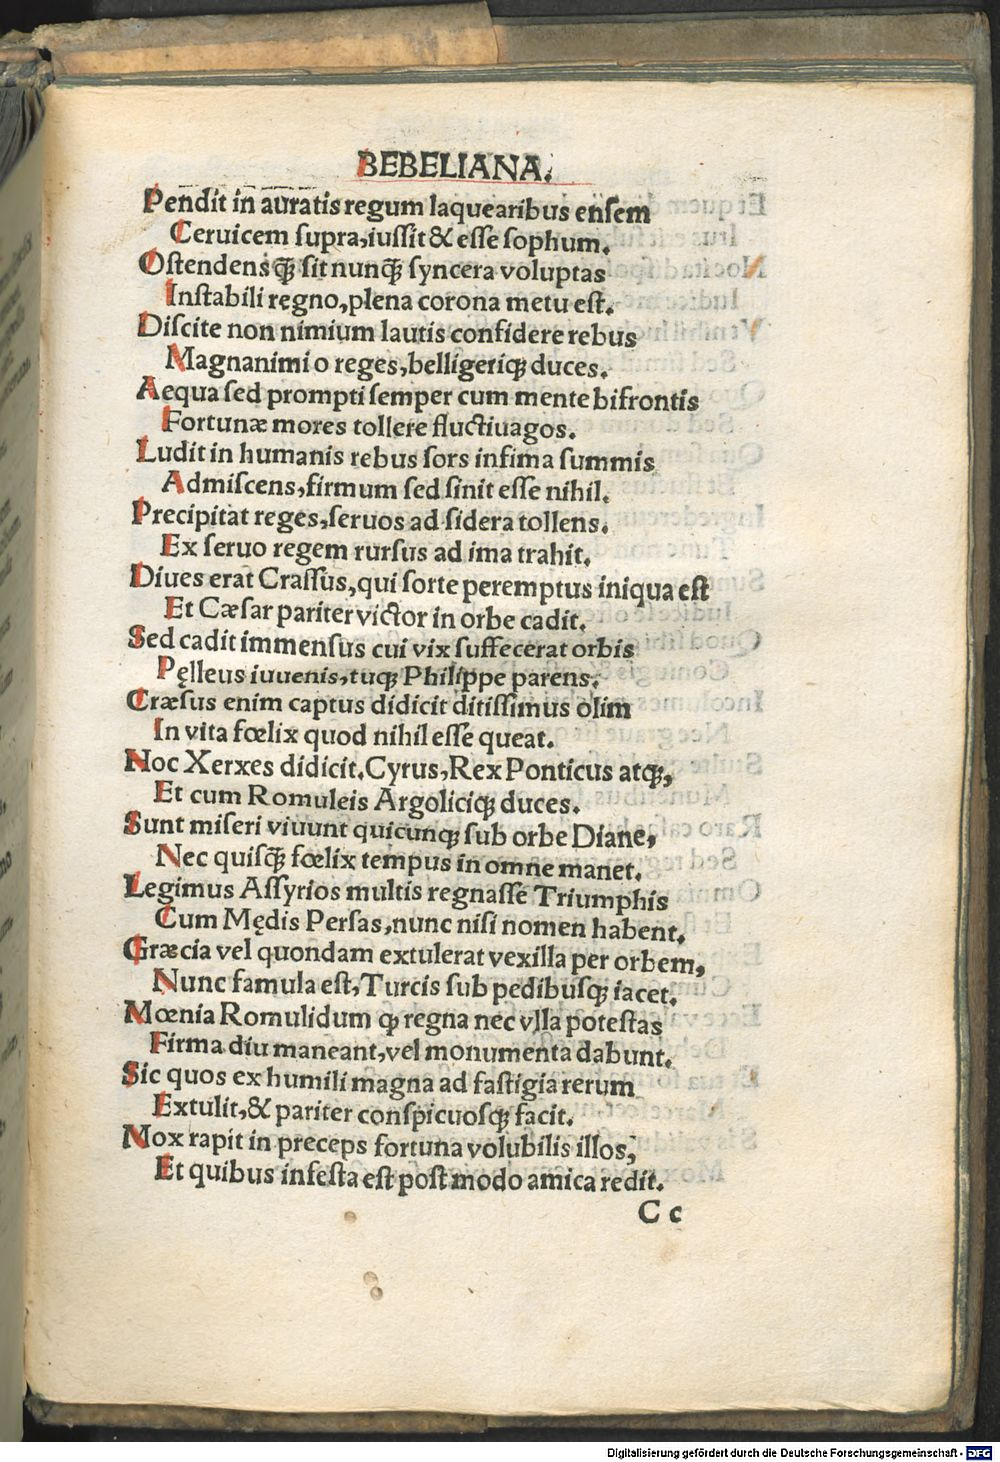 BEBELIANA.
Pendit in auratis regum laquearibus ensem
Ceruicem supra,iussit & esse sophum.
Ostendens qꝫ sit nunqꝫ syncera voluptas
Instabili regno,plena corona metu est.
Discite non nimium lautis confidere rebus
Magnanimi o reges,belligeriqꝫ duces.
Aequa sed prompti semper cum mente bifrontis
Fortunæ mores tollere fluctiuagos.
Ludit in humanis rebus sors infima summis
Admiscens,firmum sed sinit esse nihil.
Precipitat reges,seruos ad sidera tollens.
Ex seruo regem rursus ad ima trahit.
Diues erat Crassus,qui sorte peremptus iniqua est
Et Cæsar pariter victor in orbe cadit.
Sed cadit immensus cui vix suffecerat orbis
Pęlleus iuuenis,tuqꝫ Philippe parens.
Cræsus enim captus didicit ditissimus olim
In vita fœlix quod nihil esse queat.
Noc Xerxes didicit.Cyrus,Rex Ponticus atqꝫ,
Et cum Romuleis Argoliciqꝫ duces.
Sunt miseri viuunt quicunqꝫ sub orbe Diane,
Nec quisqꝫ fœlix tempus in omne manet.
Legimus Assyrios multis regnasse Triumphis
Cum Mędis Persas,nunc nisi nomen habent.
Græcia vel quondam extulerat vexilla per orbem,
Nunc famula est,Turcis sub pedibusqꝫ iacet.
Mœnia Romulidum ꝙ regna nec vlla potestas
Firma diu maneant,vel monumenta dabunt.
Sic quos ex humili magna ad fastigia rerum
Extulit,& pariter conspicuosqꝫ facit.
Mox rapit in preceps fortuna volubilis illos,
Et quibus infesta est post modo amica redit.
C c
Digitalisierung gefördert durch die Deutsche Forschungsgemeinschaft - DFG